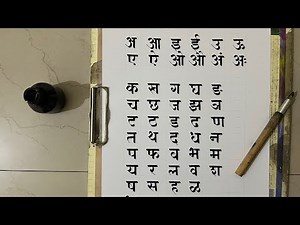 अ आ इ ई उ ऊ
ए ऐ ओ औ अं अः
क ख ग घ ङ
च छ ज झ ञ
ट ठ ड ढ ण
त थ द ध न
प फ ब भ म
य र ल व श
ष स ह ळ